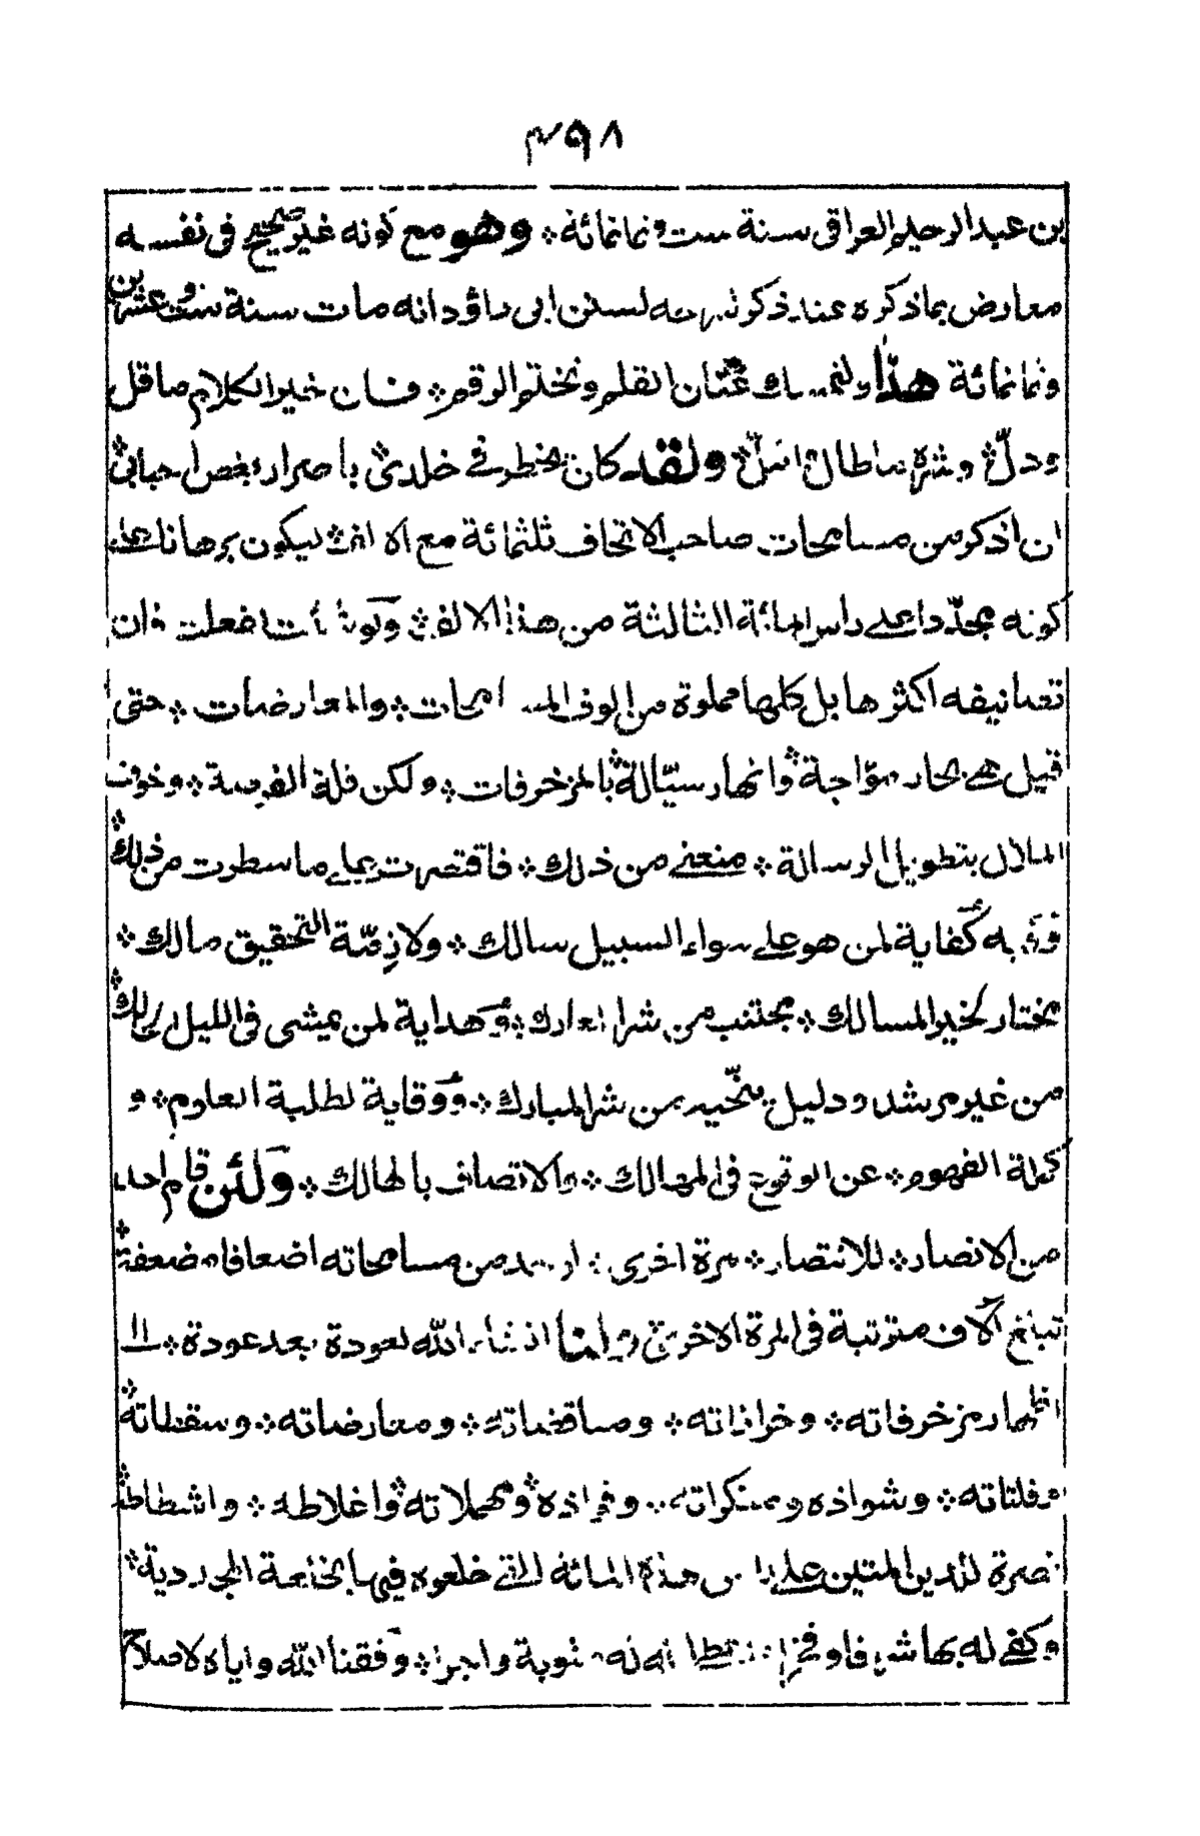 ٣٩٨
بن عبد الرحيم العراقي سنة ست وثمانمائة ※ وهو مع كونه غير صحيح في نفسه
معارض بما ذكره عند ذكر لسنن ابي داؤد انه مات سنة ست وعشرين
وثمانمائة هذا عنان القلم ونختم الرقم ※ فان خير الكلام ما قل
ودل ※ وشره ما طال ※ ولقد كان يخطر في خلدي ※ باصرار بعض احبابي ※
ان اذكر من مسامحات صاحب الاتحاف ثلثمائة مع الاف ※ ليكون برهانا على
كونه مجددا على راس المائة الثالثة من هذا الالف ※ ولو فعلت فان
تصانيفه اكثرها بل كلها مملوة من الوف المسامحات ※ والمعارضات ※ حتى
قيل هي بحار مواجة ※ وانهار سيالة ※ بالمزخرفات ※ ولكن قلة الفرصة ※ وخوف
الملال بتطويل الرسالة ※ منعني من ذلك ※ فاقتصرت على ما سطرت من ذلك ※
ففيه كفاية لمن هو على سواء السبيل سالك ※ ولازمة التحقيق مالك ※
مختار لخير المسالك ※ مجتنب من شر المعارك ※ وهداية لمن يمشي في الليل الحالك ※
من غير مرشد ودليل منجيه من شر المبارك ※ ووقاية لطلبة العلوم ※ و
كملة الفهوم ※ عن الوقوع في المهالك ※ والاتصاف بالهالك ※ ولئن قام احد
من الانصار ※ للانتصار ※ مرة اخرى ※ من مسامحاته اضعافا مضعفة ※
تبلغ آلاف مترتبة في المرة الاخرى ※ وانا انشاء الله لعودة بعد عودة ※ الى
اظهار مزخرفاته ※ وخرافاته ※ ومناقضاته ※ ومعارضاته ※ وسقطاته ※
وفلتاته ※ وشواذه ومنكراته ※ ※ ومهملاته ※ واغلاطه ※ واشطاطه ※
نصرة للدين المتين على راس هذه المائة التي خلعوه فيها بخلعة المجددية ※
وكفى له بها شرفا وفخرا ※ مثوبة واجرا ※ وفقنا الله واياه لاصلاح